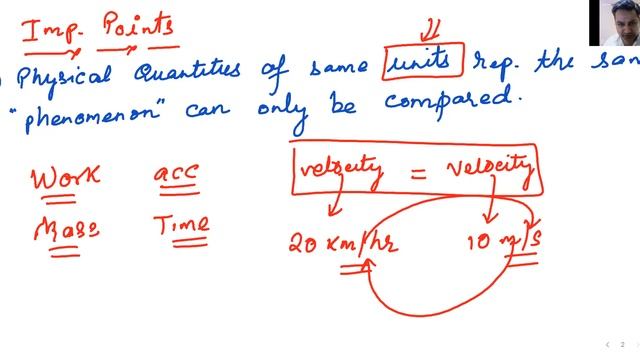 Imp. Points
Physical Quantities of same units rep. the
"phenomenon" can only be compared.
Work acc velocity = velocity
Mass Time 20 km/hr 10 m/s
2